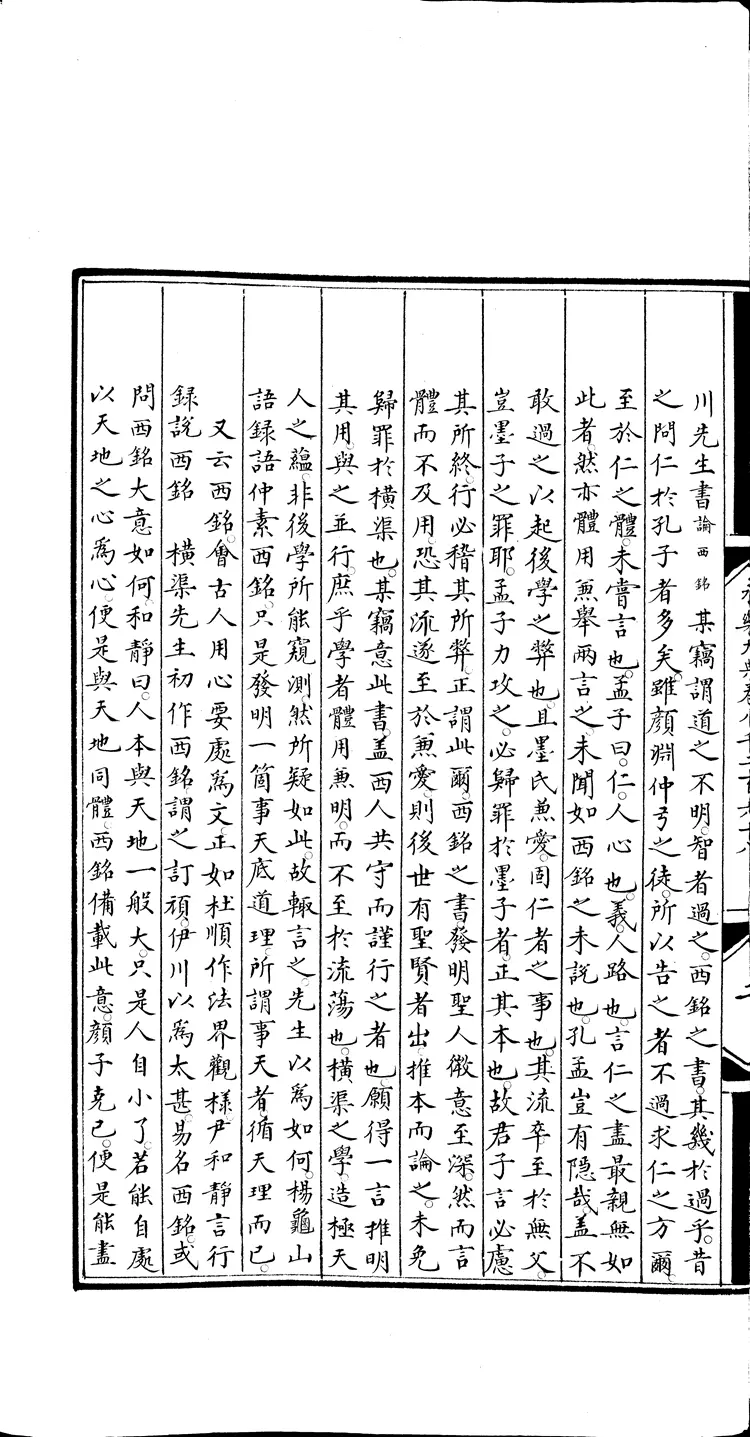 川先生書論西銘某竊謂道之不明。智者過之。西銘之書。其幾於過乎。昔
之問仁於孔子者多矣。雖顏淵仲弓之徒。所以告之者不過求仁之方爾。
至於仁之體。未嘗言也。孟子曰。仁。人心也。義。人路也。言仁之盡最親無如
此者。然亦體用兼舉兩言之。未聞如西銘之未說也。孔孟豈有隱哉。蓋不
敢過之以起後學之弊也。且墨氏兼愛。固仁者之事也。其流卒至於無父。
豈墨子之罪耶。孟子力攻之。必歸罪於墨子者。正其本也。故君子言必慮
其所終。行必稽其所弊。正謂此爾。西銘之書。發明聖人微意至深。然而言
體而不及用。恐其流遂至於兼愛。則後世有聖賢者出。推本而論之。未免
歸罪於橫渠也。某竊意此書。蓋西人共守而謹行之者也。願得一言推明
其用。與之並行。庶乎學者體用兼明。而不至於流蕩也。橫渠之學。造極天
人之蘊。非後學所能窺測。然所疑如此。故輒言之。先生以為如何。楊龜山
語録語仲素西銘。只是發明一箇事天底道理。所謂事天者。循天理而已。
又云西銘。會古人用心要處為文。正如杜順作法界觀様。尹和靜言行
録說西銘　橫渠先生初作西銘。謂之訂頑。伊川以為太甚。易名西銘。或
問西銘大意如何。和靜曰。人本與天地一般大。只是人自小了。若能自處
以天地之心為心。便是與天地同體。西銘備載此意。顏子克己。便是能盡